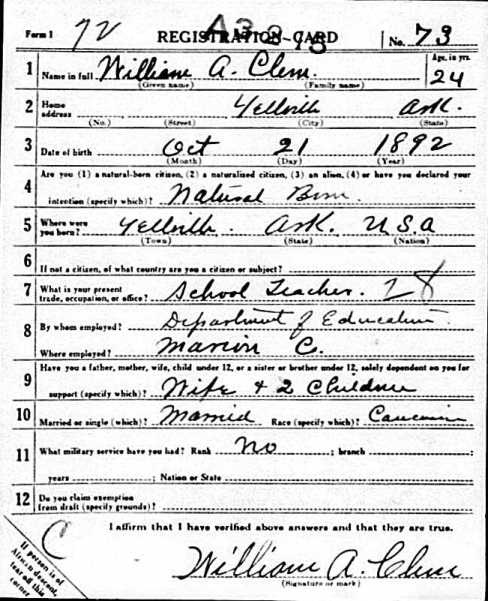 Form 1 72 REGISTRATION CARD No. 73
1 Name in full William A. Clem. Age, in yrs. 24
(Given name) (Family name)
2 Home address Yellville Ark.
(No.) (Street) (City) (State)
3 Date of birth Oct 21 1892
(Month) (Day) (Year)
4 Are you (1) a natural-born citizen, (2) a naturalized citizen, (3) an alien, (4) or have you declared your
intention (specify which)? Natural Born
5 Where were you born? Yellville Ark. U.S.A
(Town) (State) (Nation)
6 If not a citizen, of what country are you a citizen or subject?
7 What is your present trade, occupation, or office? School Teacher. 28
8 By whom employed? Department of Education
Where employed? Marion C.
9 Have you a father, mother, wife, child under 12, or a sister or brother under 12, solely dependent on you for
support (specify which)? Wife + 2 Children
10 Married or single (which)? Married Race (specify which)? Caucasian
11 What military service have you had? Rank No ; branch ;
years ; Nation or State
12 Do you claim exemption from draft (specify grounds)?
I affirm that I have verified above answers and that they are true.
C
William A. Clem
(Signature or mark)
If person is of
African descent,
tear off this
corner